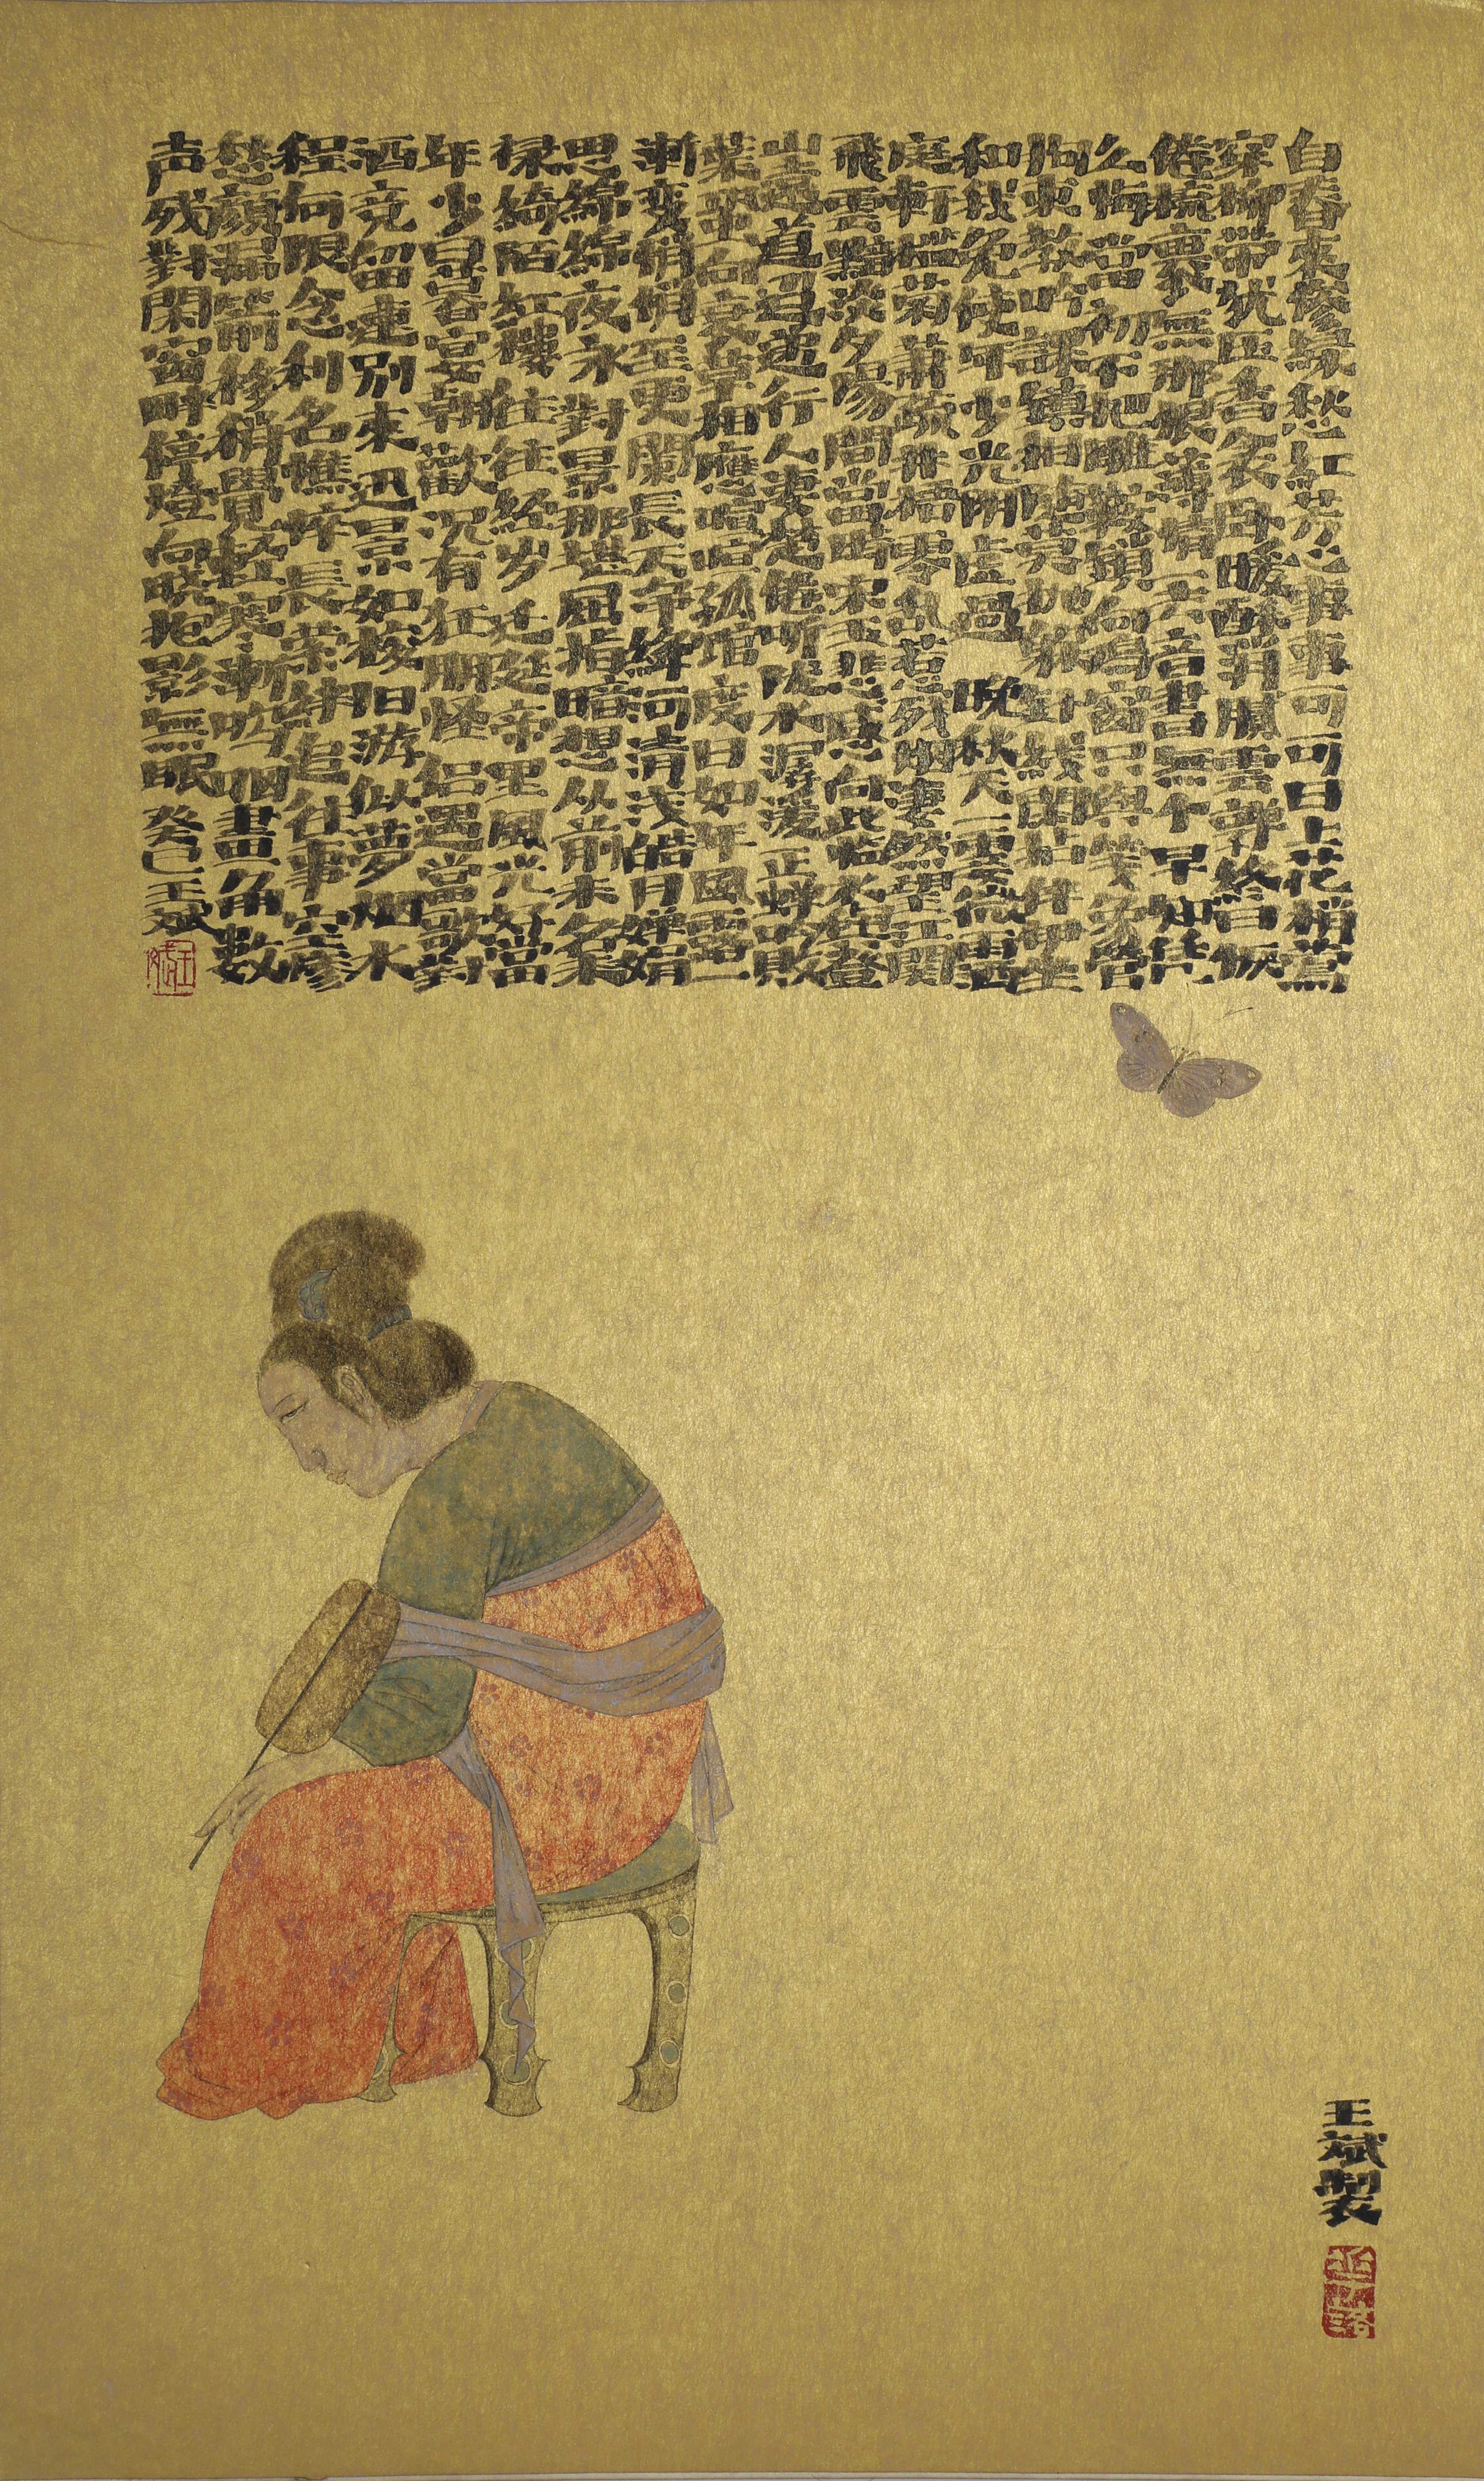 自春來慘緑愁红芳心事事可可日上花梢鶯
穿柳带犹压香衾卧暖酥消腻雲亸終日恹
倦梳裹無那恨薄情一去音書無个早知恁
么悔當初不把雕鞍鎖向鸡窗只與箋象管
拘束教吟課鎮相隨莫抛躲針綫閑拈伴伊坐
和我免使年少光陰虛過 晚秋天一霎微雨洒
庭軒檻菊蕭疏井梧零乱惹残烟凄然望江關
飛雲黯淡夕陽間當時宋玉悲感向此臨水登
山遠道迢遞行人凄楚倦听陇水潺湲正蟬吟敗
葉蛩响衰草相應喧喧孤馆度日如年風露一
漸变悄悄至更闌長天净絳河清浅皓月嬋娟
思綿綿夜永對景那堪屈指暗想从前未名未
禄綺陌红樓往往经岁迁延帝里風光好當
年少日暮宴朝歡况有狂朋怪侣遇當歌對
酒竞留連别來迅景如梭旧游似夢烟水
程何限念利名憔悴長萦绊追往事空慘
愁顔漏箭移稍覺輕寒漸嗚咽畫角數
声残對閑窗畔停燈向曉抱影無眠 癸巳王斌
王斌製